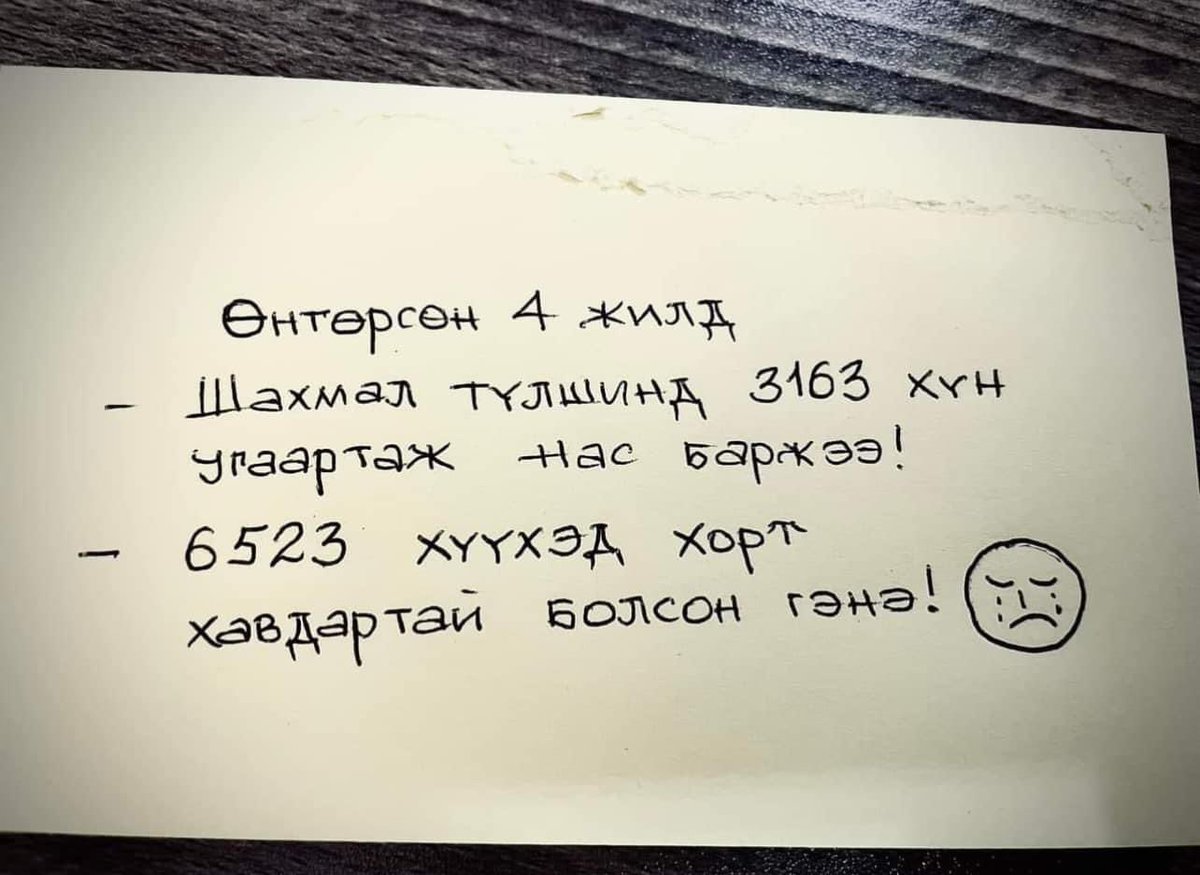 Өнтөрсөн 4 жилд
- Шахмал түлшинд 3163 хүн
угаартаж нас баржээ!
- 6523 хүүхэд хорт
хавдартай болсон гэнэ!